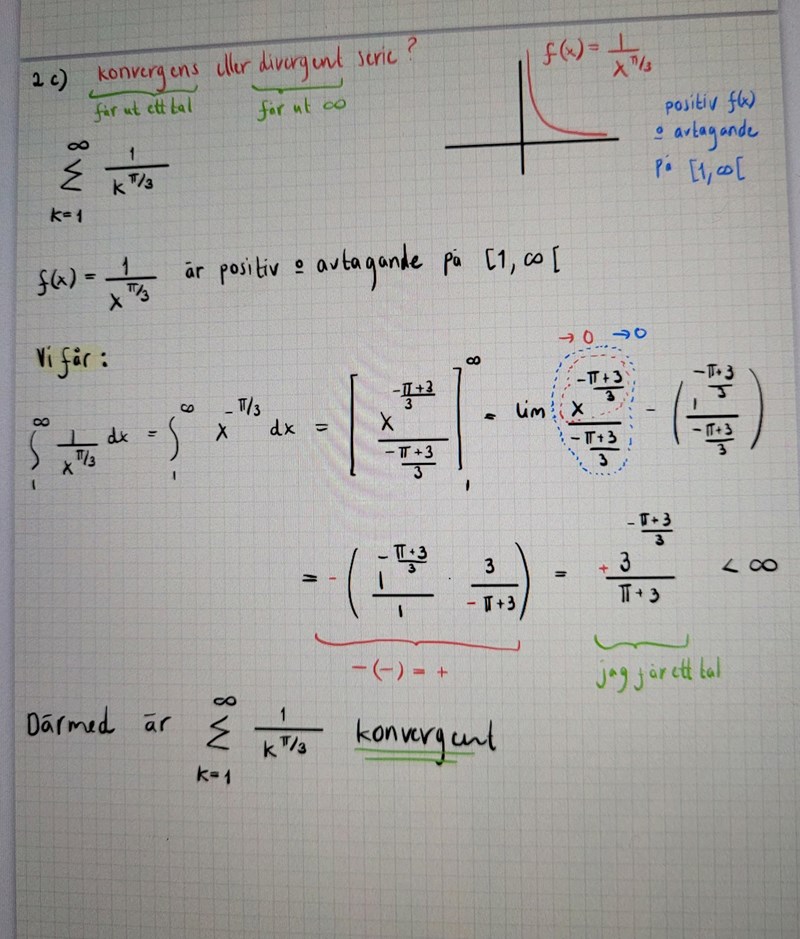 2 c) konvergens eller divergent serie?
får ut ett tal får ut ∞
f(x) = 1/x^{π/3}
positiv f(x)
o avtagande
på [1, ∞[
∞
∑ 1/k^{π/3}
k=1
f(x) = 1/x^{π/3} är positiv o avtagande på [1, ∞[
Vi får:
→0 →0
∫_1^∞ 1/x^{π/3} dx = ∫_1^∞ x^{-π/3} dx = [x^{(-π+3)/3}/((-π+3)/3)]_1^∞ = lim x^{(-π+3)/3}/((-π+3)/3) - (1^{(-π+3)/3}/((-π+3)/3))
= -(1^{(-π+3)/3}/1 · 3/(-π+3)) = +3^{(-π+3)/3}/(π+3) < ∞
-(-) = +
jag får ett tal
Därmed är ∑_{k=1}^∞ 1/k^{π/3} konvergent